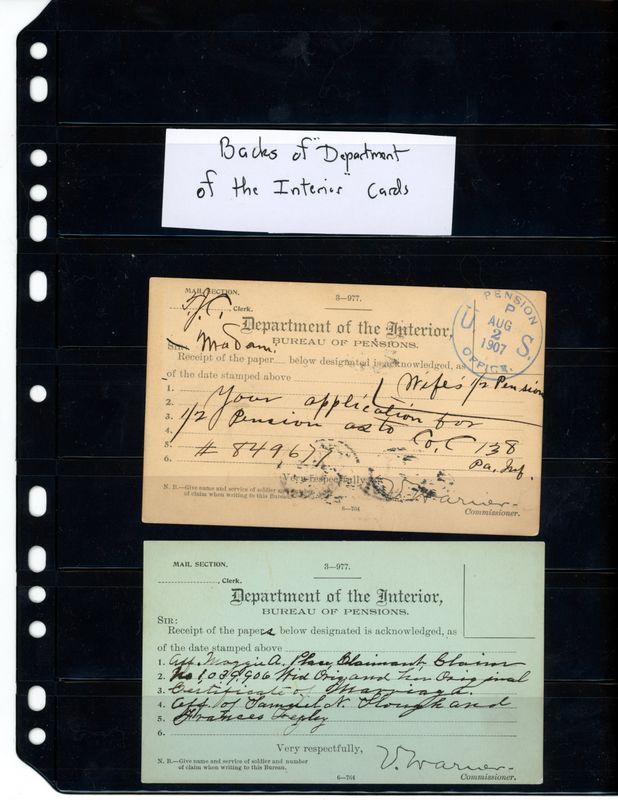 Backs of "Department
of the Interior" Cards
MAIL SECTION.
3—977.
F.J.C., Clerk.
Department of the Interior,
BUREAU OF PENSIONS.
PENSION OFFICE.
U. S.
P
AUG
2
1907
Sir: Madam.
Receipt of the paper below designated is acknowledged, as
of the date stamped above
Wife's 1/2 Pension
1.
2. Your application for
3. 1/2 Pension as to Co. C 138
4. Pa. Inf.
5. # 849677
6.
Very respectfully,
N. B.—Give name and service of soldier and
of claim when writing to this Bureau.
V. Warner
6—764
Commissioner.
MAIL SECTION.
3—977.
, Clerk.
Department of the Interior,
BUREAU OF PENSIONS.
SIR:
Receipt of the papers below designated is acknowledged, as
of the date stamped above
1. Aff. Maggie A. Place, Claimant Claim
2. No 1,039,906 Wid Orig and her Original
3. Certificate of Marriage.
4. Aff. of Samuel N. Slough and
5. Frances
6.
Very respectfully,
N. B.—Give name and service of soldier and number
of claim when writing to this Bureau.
V. Warner
6—764
Commissioner.